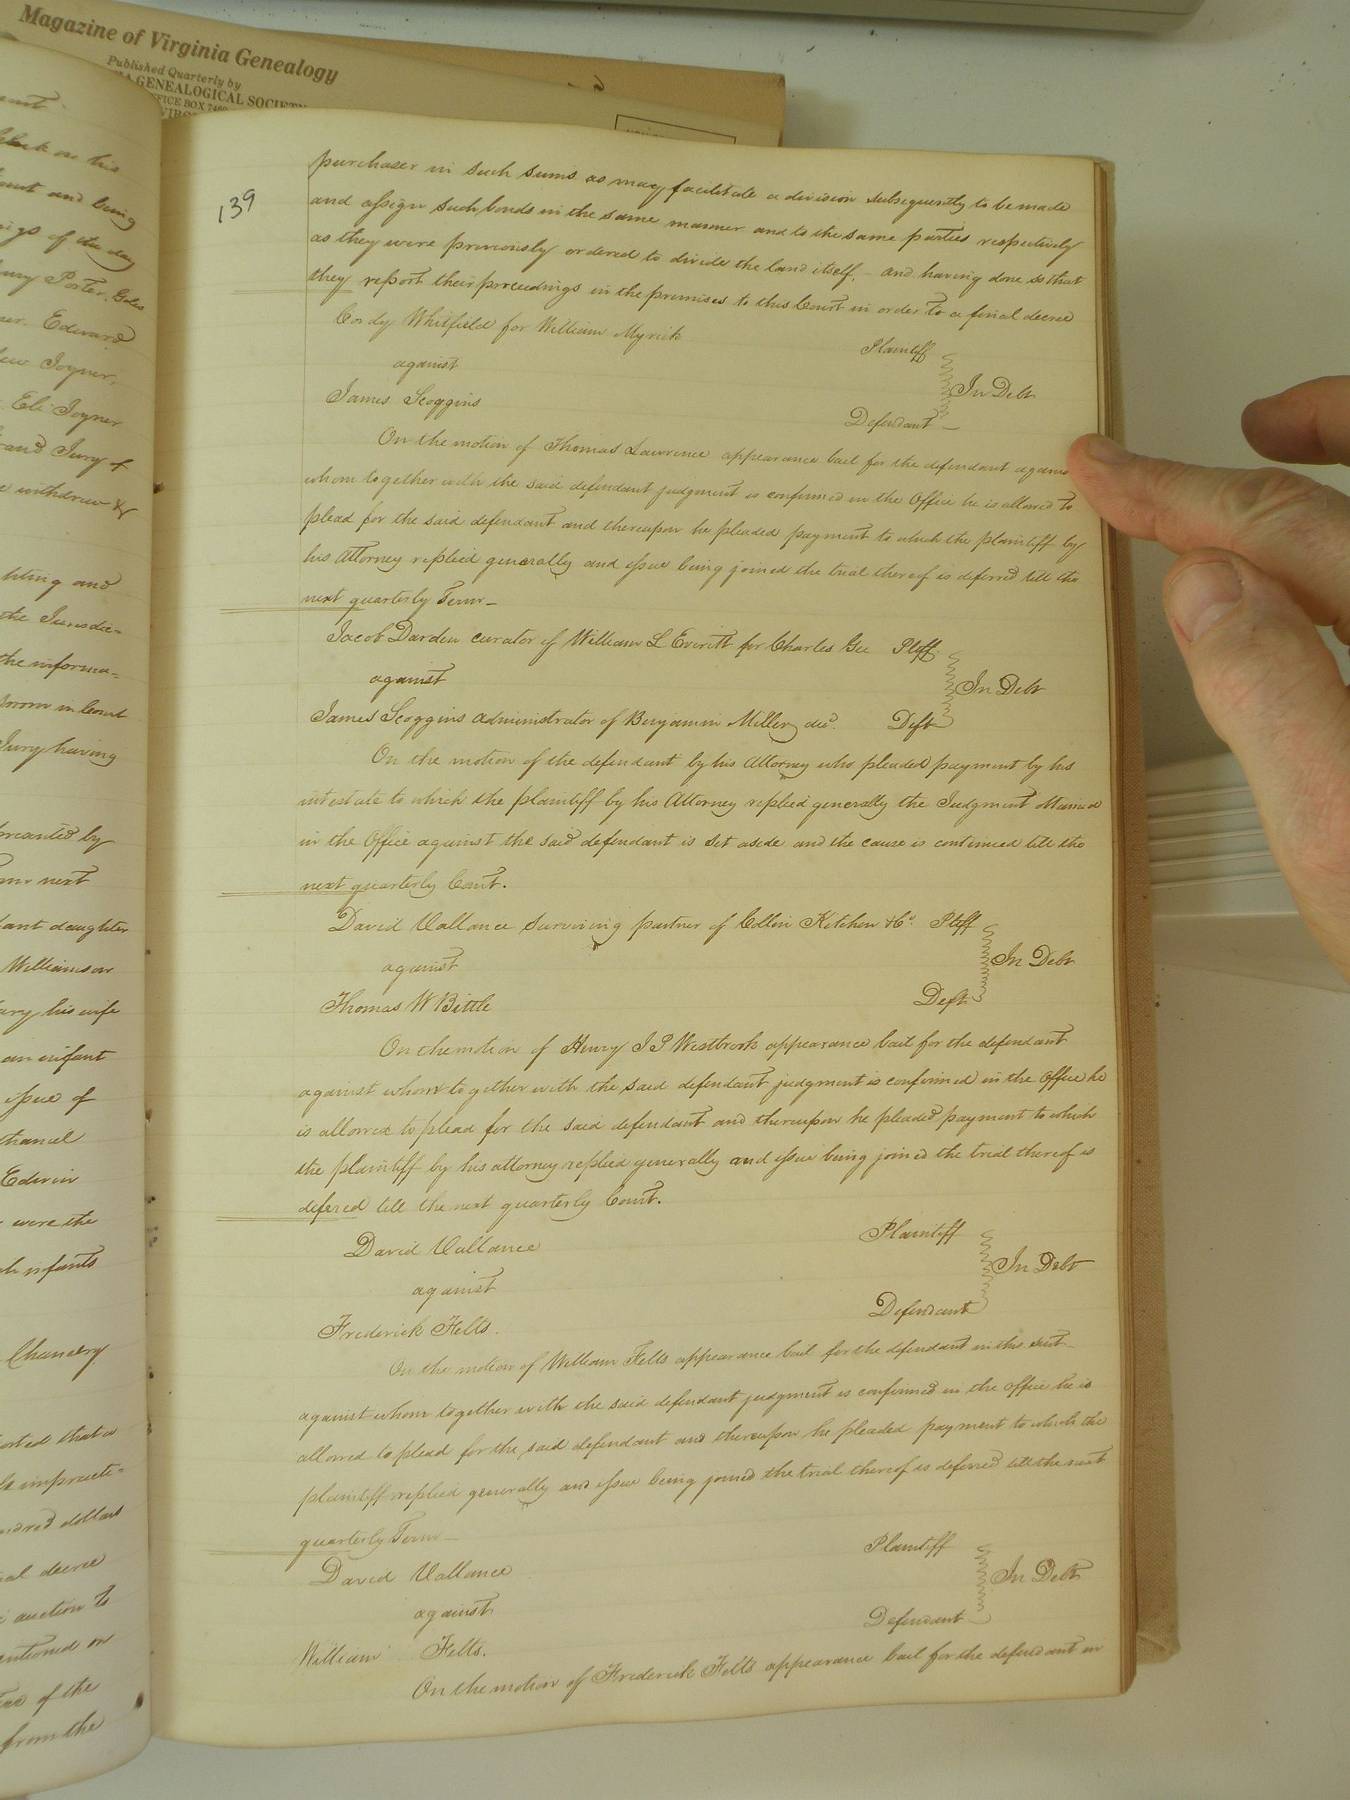 Magazine of Virginia Genealogy
Published Quarterly by
GENEALOGICAL SOCIETY
OFFICE BOX
139
purchaser in such sums as may facilitate a division subsequently to be made
and assign such bonds in the same manner and to the same parties respectively
as they were previously ordered to divide the land itself. and having done so that
they report their proceedings in the premises to this Court in order to a final decree
Cordy Whitfield for William Myrick Plaintiff
against In Debt
James Scoggins Defendant
On the motion of Thomas Lawrence appearance bail for the defendant against
whom together with the said defendant judgment is confirmed in the Office he is allowed to
plead for the said defendant and thereupon he pleaded payment to which the plaintiff by
his Attorney replied generally and issue being joined the trial thereof is deferred till the
next quarterly Term
Jacob Darden curator of William L Everitt for Charles Gee Pltff
against In Debt
James Scoggins administrator of Benjamin Miller dec'd. Deft
On the motion of the defendant by his Attorney who pleaded payment by his
intestate to which the plaintiff by his Attorney replied generally the Judgment obtained
in the Office against the said defendant is set aside and the cause is continued till the
next quarterly Court.
David Vallance surviving partner of Collin Kitchen & Co. Pltff
against In Debt
Thomas W Bittle Deft
On the motion of Henry J P Westbrook appearance bail for the defendant
against whom together with the said defendant judgment is confirmed in the Office he
is allowed to plead for the said defendant and thereupon he pleaded payment to which
the plaintiff by his attorney replied generally and issue being joined the trial thereof is
defered till the next quarterly Court.
David Vallance Plaintiff
against In Debt
Frederick Felts. Defendant
On the motion of William Felts appearance bail for the defendant in this suit
against whom together with the said defendant judgment is confirmed in the Office he is
allowed to plead for the said defendant and thereupon he pleaded payment to which the
plaintiff replied generally and issue being joined the trial thereof is deferred till the next
quarterly Term
David Vallance Plaintiff
against In Debt
William Felts. Defendant
On the motion of Frederick Felts appearance bail for the defendant in
on this
and being
of the day
Porter, Giles
Edward
Joyner,
Eli Joyner
Jury &
withdrew &
and
the Jurisdic=
the informa=
sworn in Court
Jury having
by
next
daughter
Williamson
his wife
an infant
issue of
Edwin
were the
infants
Chancery
that a
impracti=
dollars
decree
auction to
on
of the
from the